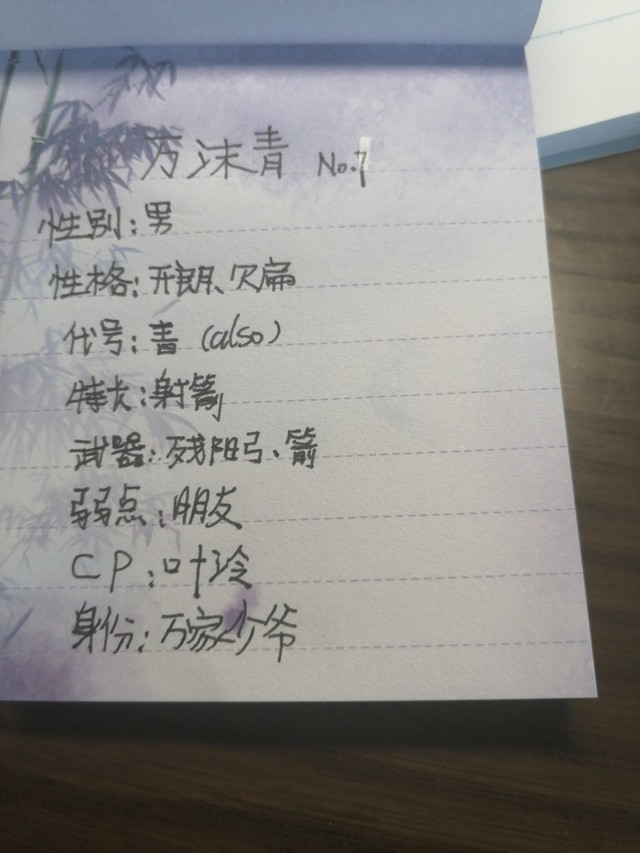 万沫青 No.7
性别：男
性格：开朗、欠扁
代号：青（also）
特长：射箭
武器：残阳弓、箭
弱点：朋友
CP：叶泠
身份：万家少爷